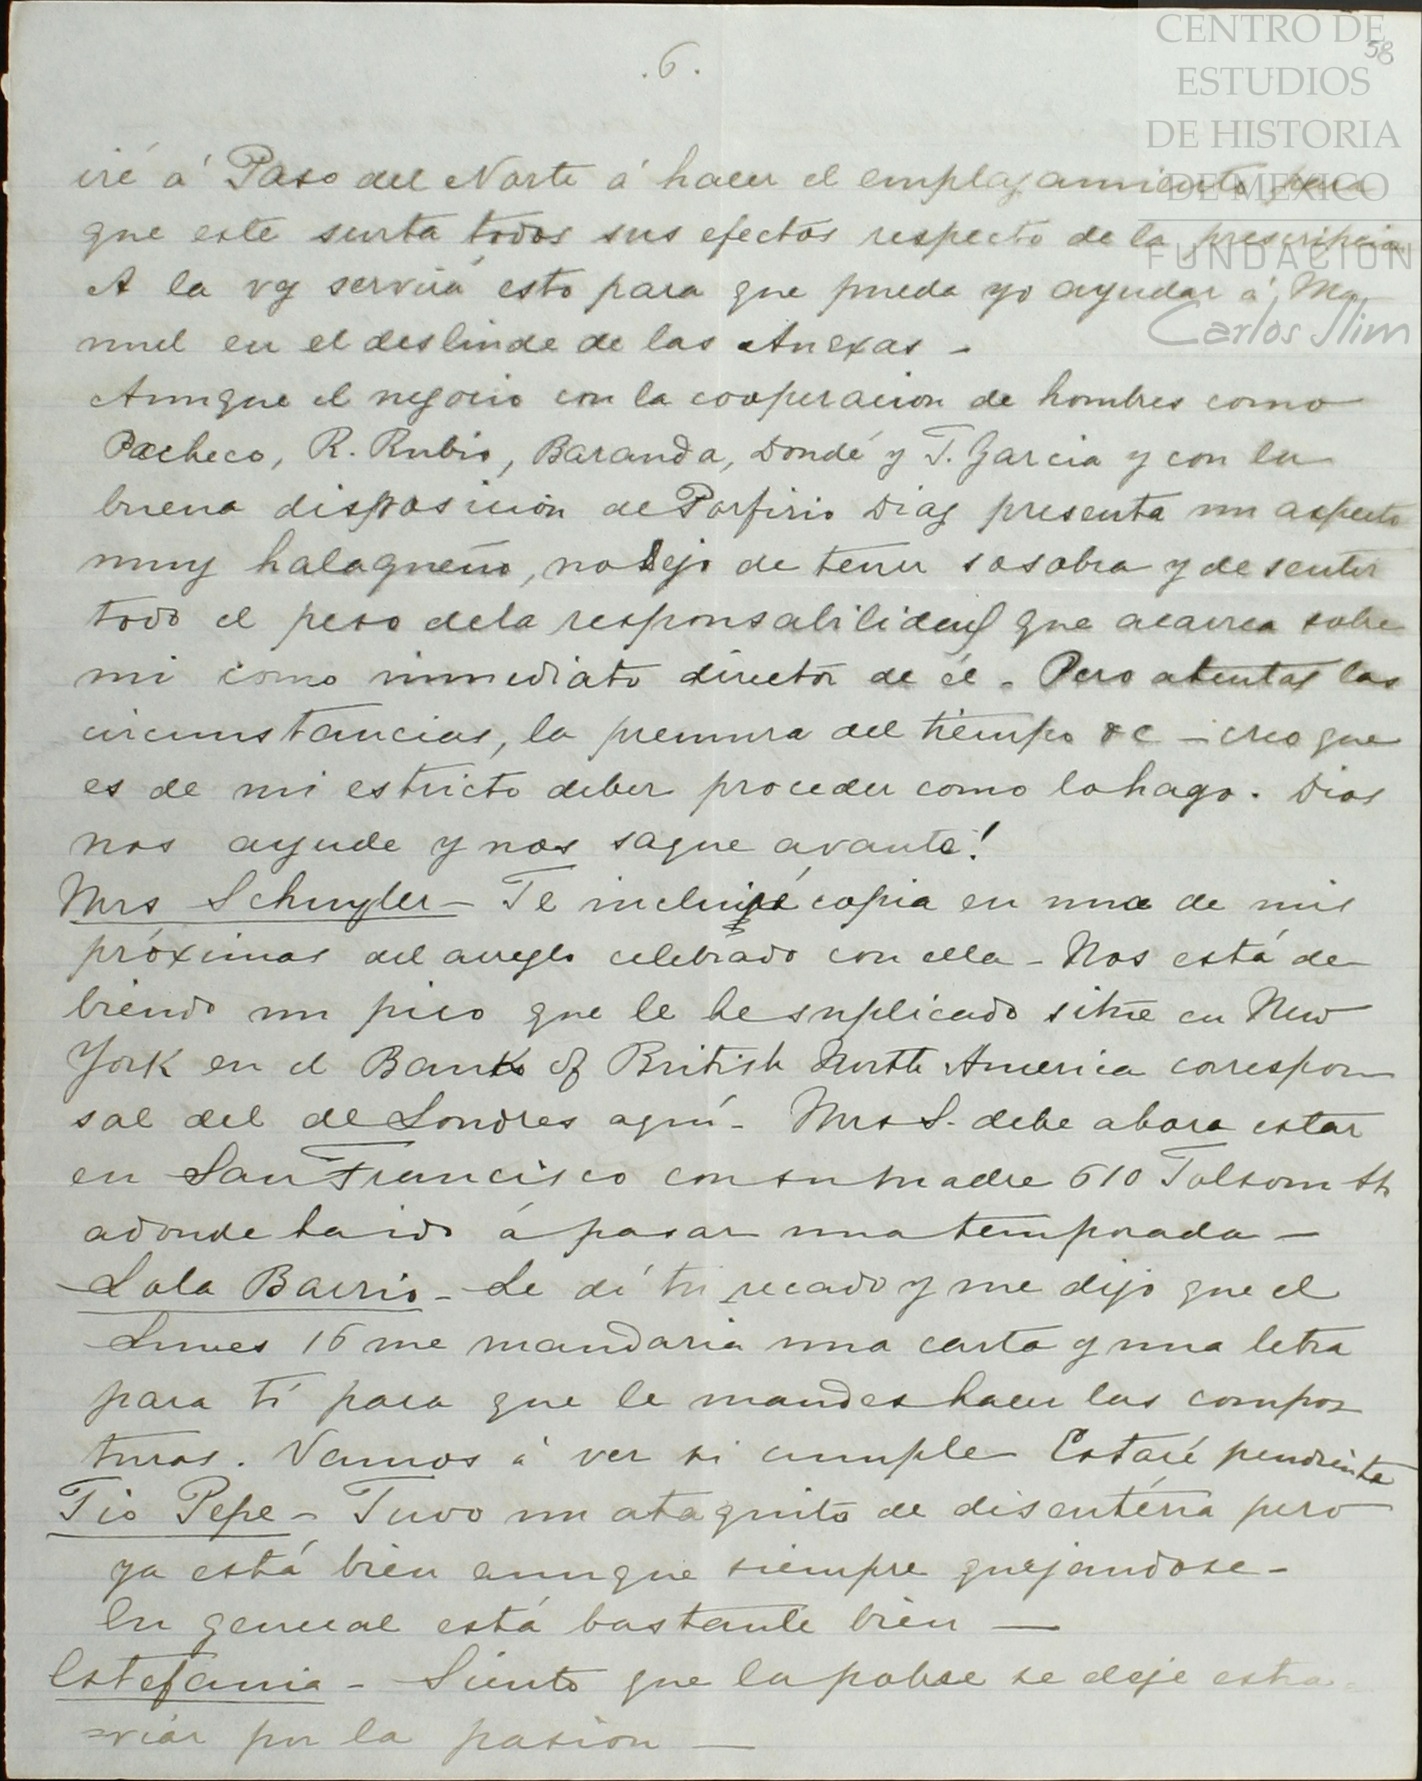 CENTRO DE
ESTUDIOS
DE HISTORIA
DE MEXICO
FUNDACIÓN
Carlos Slim
58
.6.
iré á Paso del Norte á hacer el emplazamiento para
que este surta todos sus efectos respecto de la prescripcion
A la vez servirá esto para que pueda yo ayudar á Ma
nuel en el deslinde de las Anexas -
Aunque el negocio con la cooperacion de hombres como
Pacheco, R. Rubio, Baranda, Dondé y T. Garcia y con la
buena disposicion de Porfirio Diaz presenta un aspecto
muy halagueño, no dejo de tener sosobra y de sentir
todo el peso de la responsabilidad que acarrea sobre
mi como inmediato director de él. Pero atentas las
circunstancias, la premura del tiempo &c - creo que
es de mi estricto deber proceder como lo hago. Dios
nos ayude y nos saque avante!
Mrs Schuyler - Te incluiré copia en una de mis
próximas del arreglo celebrado con ella - Nos está de
biendo un pico que le he suplicado sitúe en New
York en el Bank of British North America correspon
sal del de Londres aquí - Mrs S. debe ahora estar
en San Francisco con su madre 610 Folsom St
adonde ha ido á pasar una temporada -
Lola Barrio - Le dí tu recado y me dijo que el
Lunes 16 me mandaria una carta y una letra
para tí para que le mandes hacer las compos
turas. Vamos á ver si cumple Estaré pendiente
Tio Pepe - Tuvo un ataquito de disentéria pero
ya está bien aunque siempre quejandose -
En general está bastante bien -
Estefania - Siento que la pobre se deje estra
=viar por la pasion -